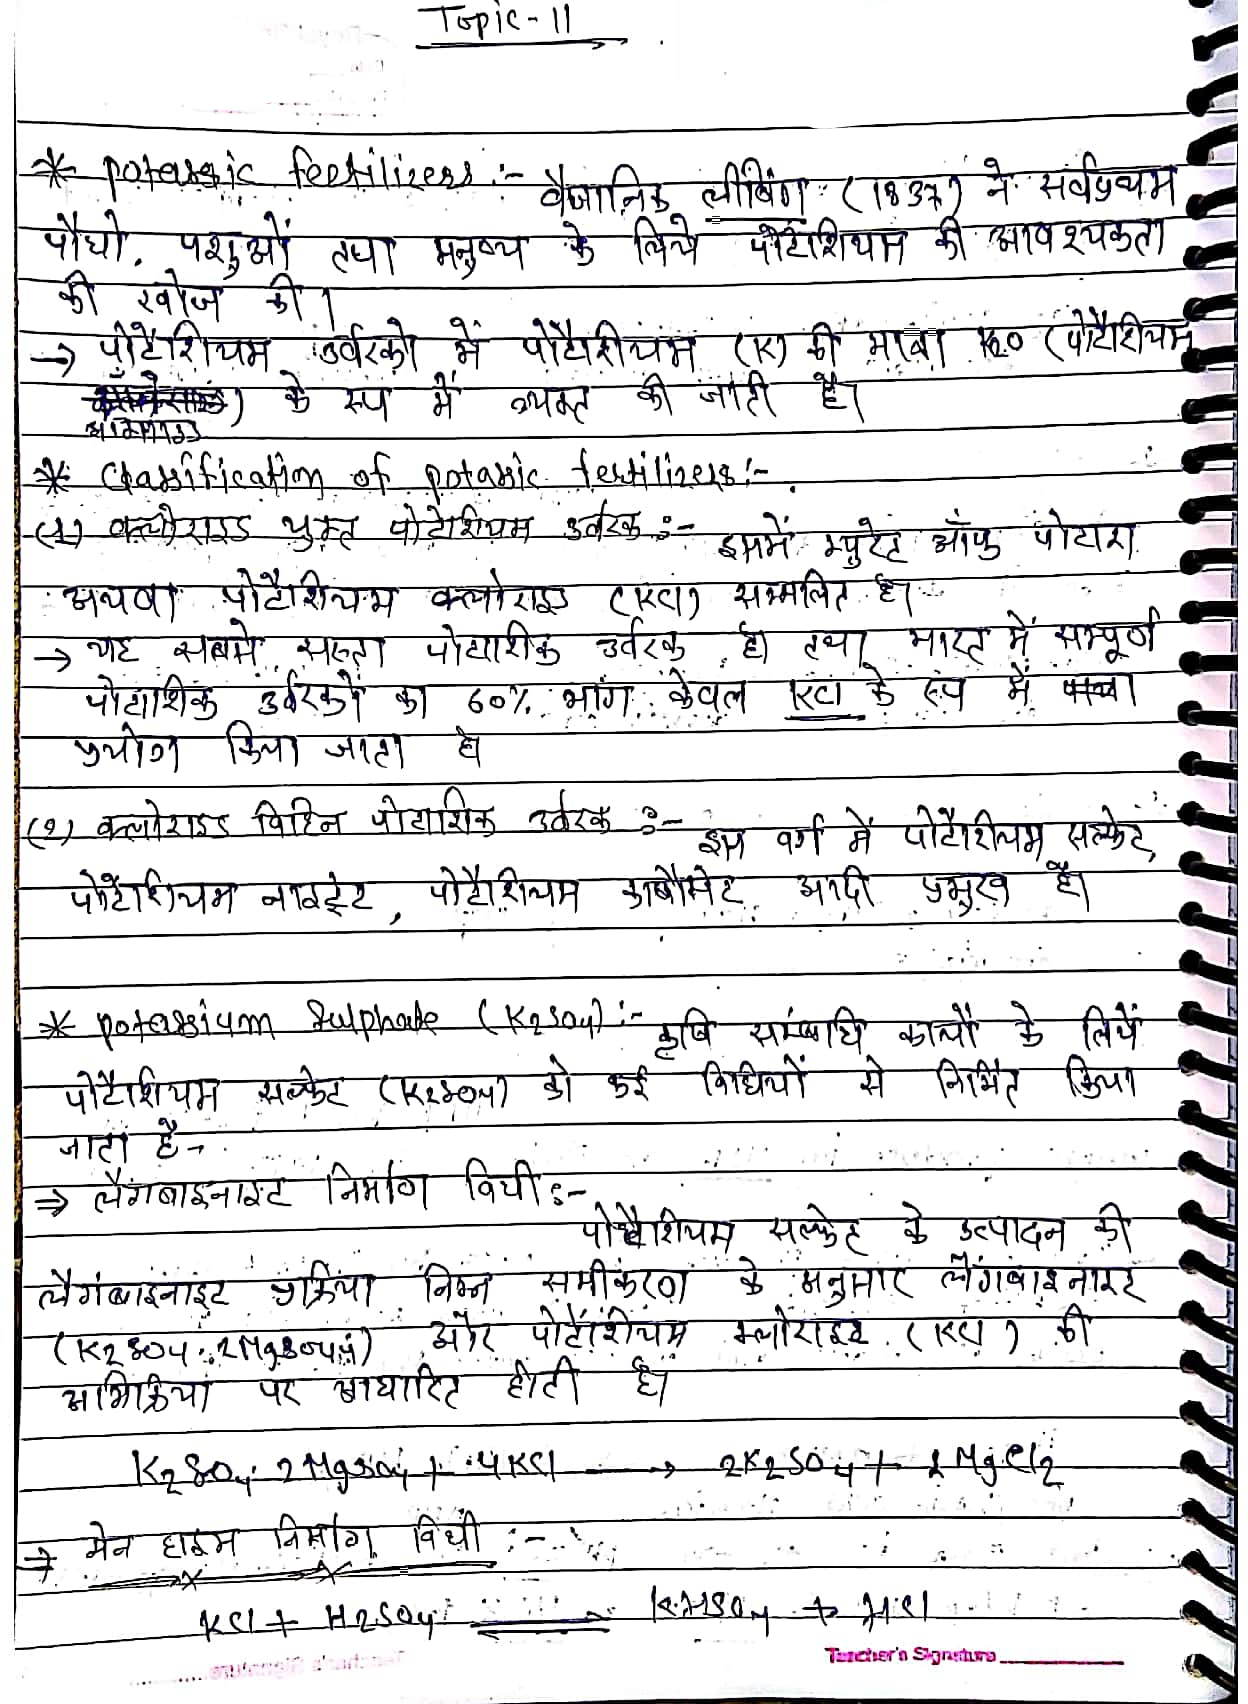 Topic - 11
* potassic fertilizers :- वैज्ञानिक लीबिंग (1837) ने सर्वप्रथम
पौधो, पशुओं तथा मनुष्य के लिये पोटैशियम की आवश्यकता
की खोज की ।
→ पोटैशियम उर्वरको में पोटैशियम (K) की मात्रा K2O (पोटैशियम
ऑक्साइड) के रूप में व्यक्त की जाती है।
* Classification of potasic fertilizers :-
(1) क्लोराइड युक्त पोटेशियम उर्वरक :- इसमें म्युरेट ऑफ पोटाश
अथवा पोटैशियम क्लोराइड (KCl) सम्मलित है।
→ यह सबसे सस्ता पोटाशिक उर्वरक है। तथा भारत में सम्पूर्ण
पोटाशिक उर्वरकों का 60% भांग केवल KCl के रूप में
प्रयोग किया जाता है
(2) क्लोराइड विहिन पोटाशिक उर्वरक :- इस वर्ग में पोटैशियम सल्फेट,
पोटैशियम नाइट्रेट, पोटैशियम कार्बोनेट आदी प्रमुख है।
* potassium Sulphate (K2SO4) :- कृषि सम्बंधि कार्यों के लियें
पोटैशियम सल्फेट (K2SO4) को कई विधियों से निर्मित किया
जाता है -
⇒ लैंगबाइनाइट निर्माण विधी :-
पोटैशियम सल्फेट के उत्पादन की
लैगंबाइनाइट प्रक्रिया निम्न समीकरण के अनुसार लैंगबाइनाइट
(K2SO4 . 2MgSO4) और पोटैशियम क्लोराइड (KCl) की
अभिक्रिया पर आधारित होती है।
K2SO4 . 2MgSO4 + 4KCl → 2K2SO4 + 2MgCl2
→ मेन हाइम निर्माण विधी :-
KCl + H2SO4 ⇌ KHSO4 + HCl
Teacher's Signature